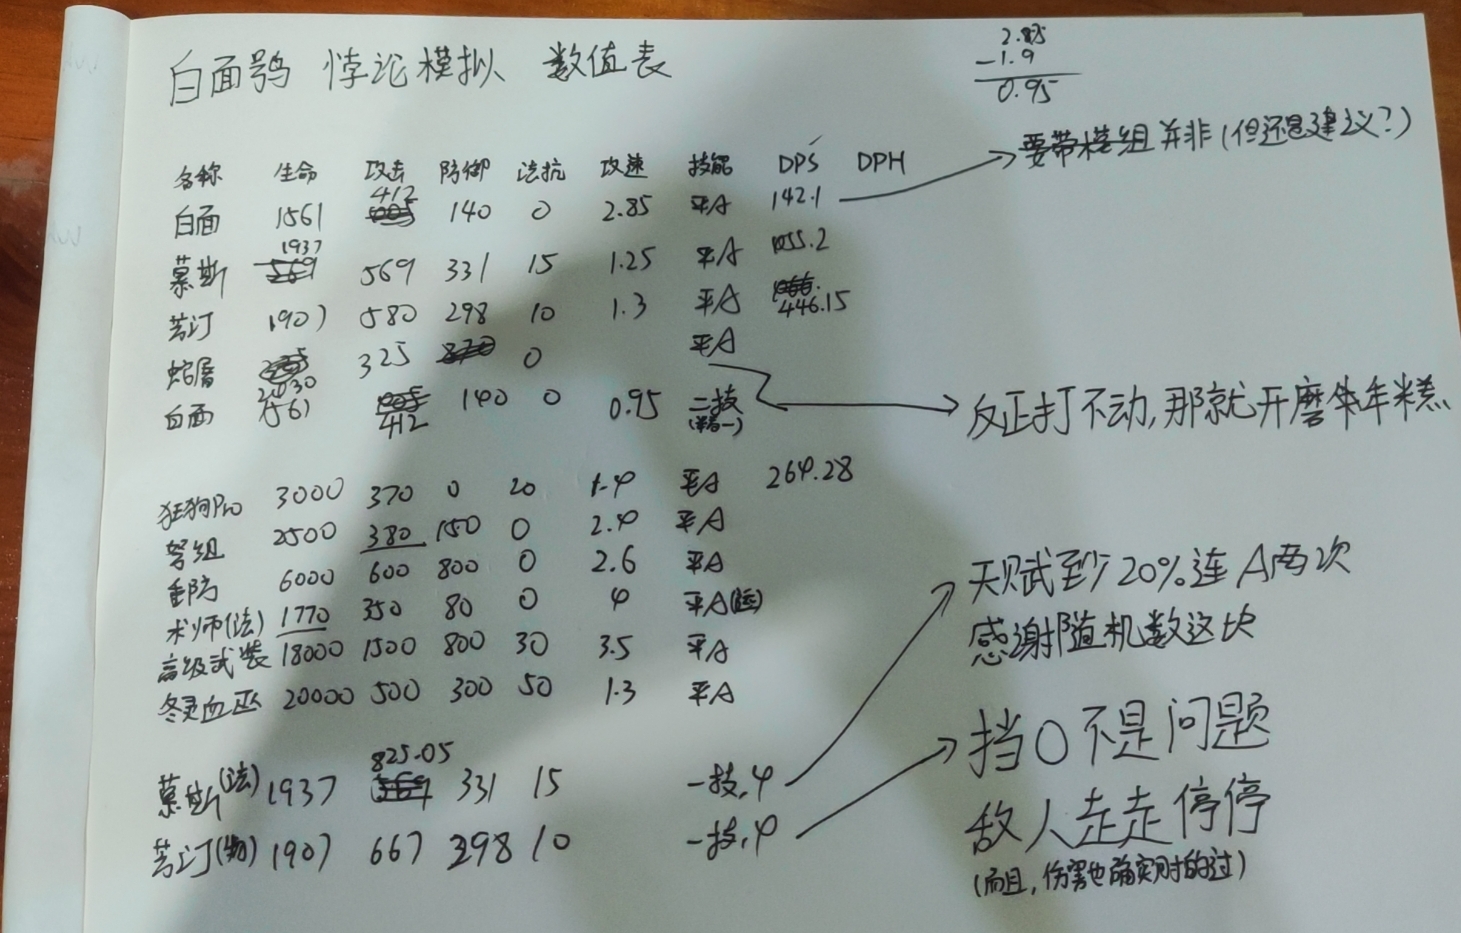 白面鸮 悖论模拟 数值表
2.85
-1.9
0.95
名称 生命 攻击 防御 法抗 攻速 技能 DPS DPH
白面 1561 412 140 0 2.85 平A 142.1
要带模组 并非(但还是建议?)
慕斯 1937 569 331 15 1.25 平A 1055.2
芳汀 1907 580 298 10 1.3 平A 446.15
蛇屠 2030 325 0 平A
白面 1561 412 140 0 0.95 二技
反正打不动,那就开磨年年糕
狂狗Pro 3000 370 0 20 1.4 平A 264.28
弩组 2500 380 150 0 2.4 平A
重防 6000 600 800 0 2.6 平A
术师(法) 1770 350 80 0 4 平A(远)
高级武装 18000 1500 800 30 3.5 平A
冬灵血巫 20000 500 300 50 1.3 平A
天赋至少20%连A两次
感谢随机数这块
慕斯(法) 1937 825.05 331 15 一技,4
芳汀(物) 1907 667 298 10 一技,4
挡0不是问题
敌人走走停停
(而且,伤害也确实对的过)